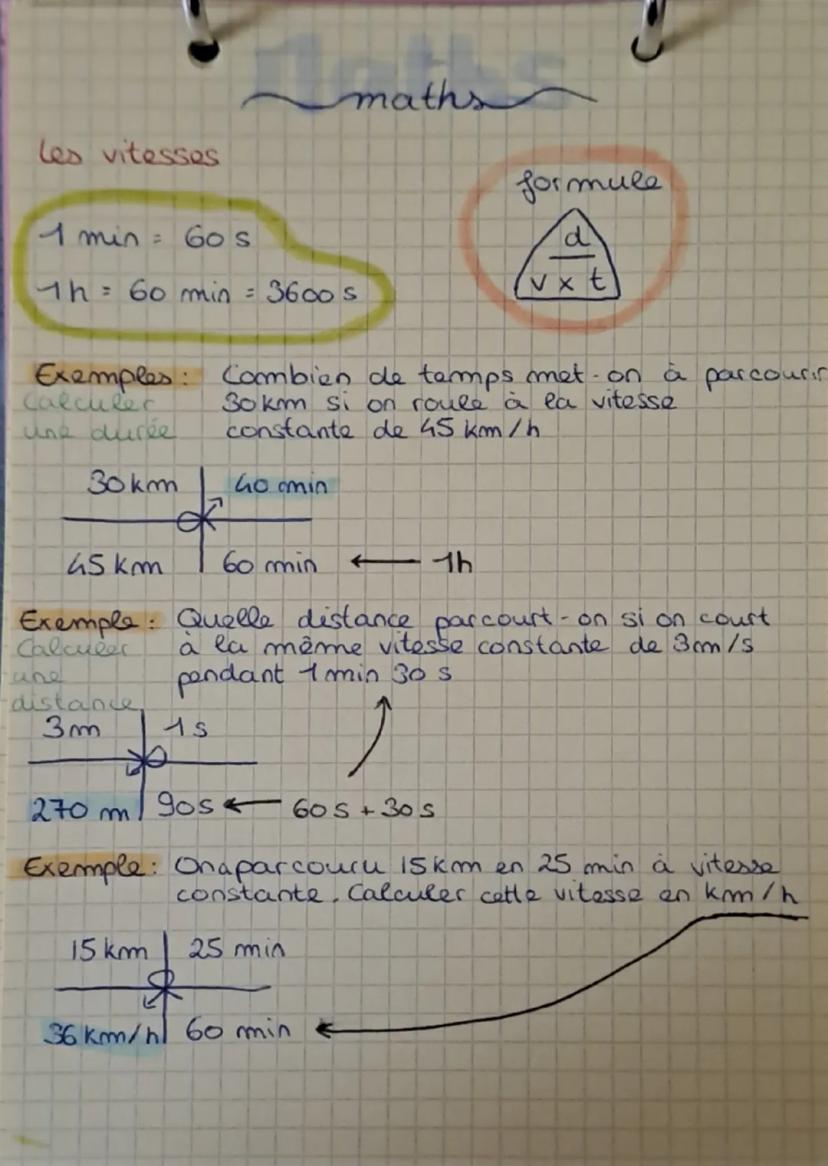 maths
Les vitesses
formule
d
v x t
1 min = 60 s
1h = 60 min = 3600 s
Exemples : Combien de temps met-on à parcourir
Calculer 30 km si on roule à la vitesse
une durée constante de 45 km/h
30 km 40 min
45 km 60 min ← 1h
Exemple : Quelle distance parcourt-on si on court
Calculer à la même vitesse constante de 3m/s
une pendant 1 min 30 s
distance
3m 1s
270 m 90s ← 60s + 30s
Exemple : On a parcouru 15 km en 25 min à vitesse
constante. Calculer cette vitesse en km/h
15 km 25 min
36 km/h 60 min ←